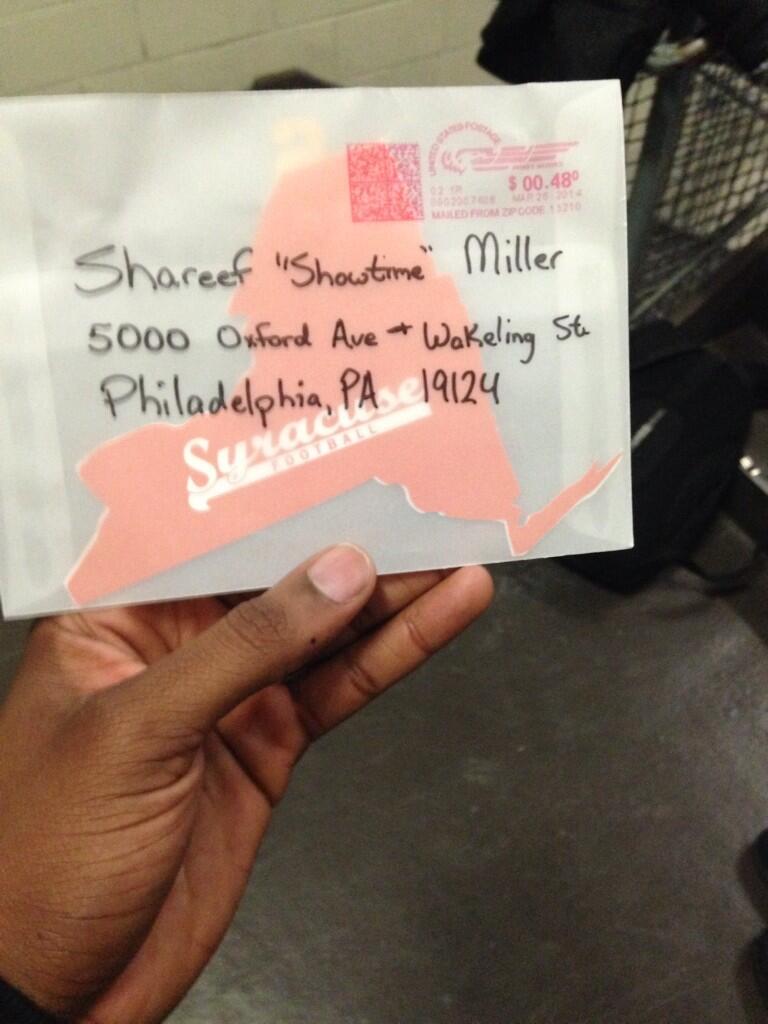 UNITED STATES POSTAGE
PITNEY BOWES
02 1R
$ 00.48⁰
MAR 26 2014
MAILED FROM ZIP CODE 13210
Shareef "Showtime" Miller
5000 Oxford Ave + Wakeling St.
Philadelphia, PA 19124
Syracuse
FOOTBALL